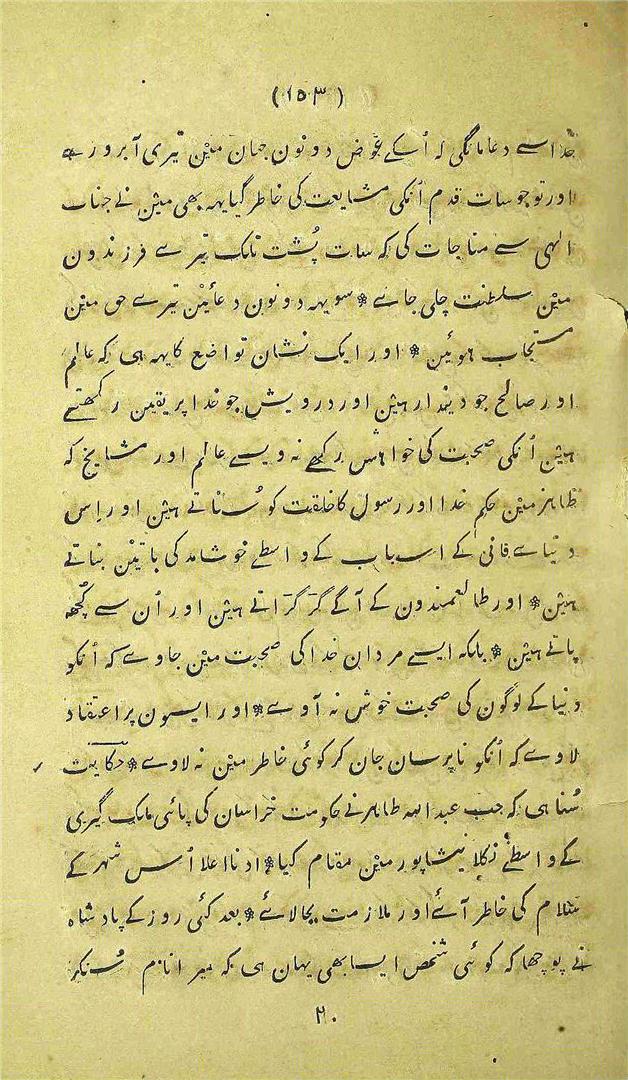 (۱۵۳)
خدا سے دعا مانگی کہ اُسکے عوض دونون جہان مین تیری آبرو رہے
اور تو جو سات قدم اُنکی مشایعت کی خاطر گیا یہہ بھی مین نے جناب
الہی سے مناجات کی کہ سات پُشت تلک تیرے فرزندون
مین سلطنت چلی جاے * سو یہہ دونون دعائین تیرے حق مین
مستجاب ہوئین * اور ایک نشان تواضع کا یہہ ہی کہ عالم
اور صالح جو دیندار ہین اور درویش جو خدا پر یقین رکھتے
ہین اُنکی صحبت کی خواہش رکھے نہ ویسے عالم اور مشایخ کہ
ظاہر مین حکم خدا اور رسول کا خلقت کو سُناتے ہین اور اِس
دنیاے فانی کے اسباب کے واسطے خوشامد کی باتین بناتے
ہین * اور طالعمندون کے آگے گڑگڑاتے ہین اور اُن سے کُچھ
پاتے ہین * بلکہ ایسے مردان خدا کی صحبت مین جاوے کہ اُنکو
دنیا کے لوگون کی صحبت خوش نہ آوے * اور ایسون پر اعتقاد
لاوے کہ اُنکو ناپرسان جان کر کوئی خاطر مین نہ لاوے * حکایت
سُنا ہی کہ جب عبداللہ طاہر نے حکومت خراسان کی پائی ملک گیری
کے واسطے نکلا نیشاپور مین مقام کیا * ادنا اعلا اُس شہر کے
سلام کی خاطر آئے اور ملازمت بجا لائے * بعد کئی روز کے پادشاہ
نے پوچھا کہ کوئی شخص ایسا بھی یہان ہی کہ میرا نام سُنکر
۲۰